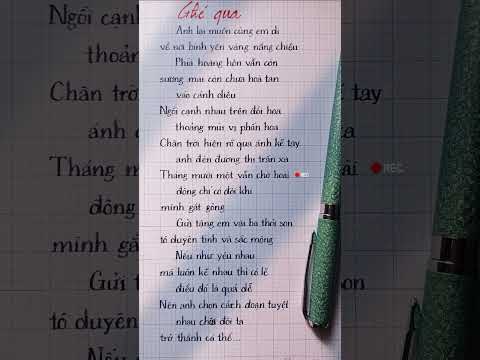 Ghé qua
Anh lại muốn cùng em đi
về nơi bình yên vàng nắng chiều
Phía hoàng hôn vẫn còn
sương mai còn chưa hoà tan
vào cánh diều
Ngồi cạnh nhau trên đồi hoa
thoảng mùi vị phấn hoa
Chân trời hiện rõ qua ánh kẽ tay
ánh đèn đường thị trấn xa
Tháng mười một vẫn chờ hoài
REC
đông chí có đôi khi
mình gắt gỏng
Gửi tặng em vài ba thỏi son
tô duyên tình và sắc mộng
Nếu như yêu nhau
mà luôn kề nhau thì có lẽ
điều đó là quá dễ
Nên anh chọn cách đoạn tuyệt
nhau đôi ta
trở thành cá thể...